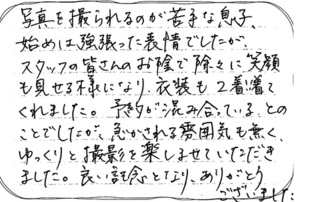 写真を撮られるのが苦手な息子、
始めは強張った表情でしたが、
スタッフの皆さんのお陰で除々に笑顔
も見せる様になり、衣装も2着着て
くれました。予約が混み合っている、との
ことでしたが、急かされる雰囲気も無く
ゆっくりと撮影を楽しませていただき
ました。良い記念となり、ありがとう
ございました